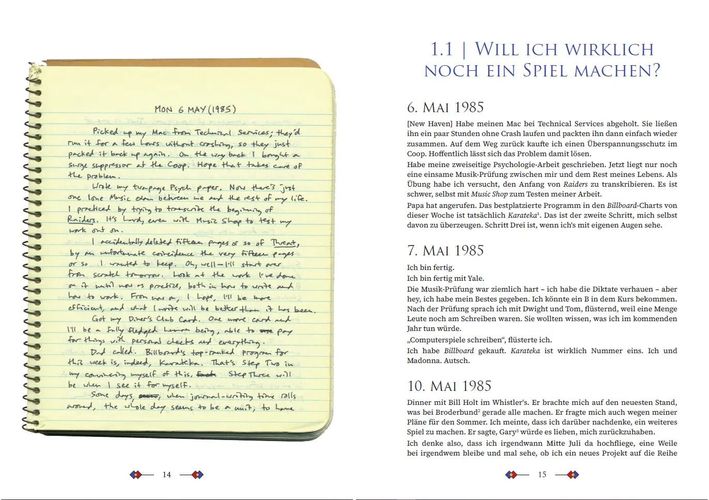 MON 6 MAY (1985)
Picked up my Mac from Technical Services; they'd
run it for a few hours without crashing, so they just
packed it back up again. On the way back I bought a
surge suppressor at the Coop. Hope that takes care of
the problem.
Wrote my two-page Psych paper. Now there's just
one lone Music exam between me and the rest of my life.
I practiced by trying to transcribe the beginning of
Raiders. It's hard, even with Music Shop to test my
work out on.
I accidentally deleted fifteen pages or so of Threat,
by an unfortunate coincidence the very fifteen pages
or so I wanted to keep. Oh, well—I'll start over
from scratch tomorrow. Look at the work I've done
on it until now as practice, both in how to write and
how to work. From now on, I hope, I'll be more
efficient, and what I write will be better than it has been.
Got my Diner's Club Card. One more card and
I'll be a fully fledged human being, able to pay
for things with personal checks and everything.
Dad called. Billboard's top-ranked program for
this week is, indeed, Karateka. That's Step Two in
my convincing myself of this. Step Three will
be when I see it for myself.
Some days, when journal-writing time rolls
around, the whole day seems to be a unit; to hone
14
1.1 | Will ich wirklich
noch ein Spiel machen?
6. Mai 1985
[New Haven] Habe meinen Mac bei Technical Services abgeholt. Sie ließen
ihn ein paar Stunden ohne Crash laufen und packten ihn dann einfach wieder
zusammen. Auf dem Weg zurück kaufte ich einen Überspannungsschutz im
Coop. Hoffentlich lässt sich das Problem damit lösen.
Habe meine zweiseitige Psychologie-Arbeit geschrieben. Jetzt liegt nur noch
eine einsame Musik-Prüfung zwischen mir und dem Rest meines Lebens. Als
Übung habe ich versucht, den Anfang von Raiders zu transkribieren. Es ist
schwer, selbst mit Music Shop zum Testen meiner Arbeit.
Papa hat angerufen. Das bestplatzierte Programm in den Billboard-Charts von
dieser Woche ist tatsächlich Karateka¹. Das ist der zweite Schritt, mich selbst
davon zu überzeugen. Schritt Drei ist, wenn ich's mit eigenen Augen sehe.
7. Mai 1985
Ich bin fertig.
Ich bin fertig mit Yale.
Die Musik-Prüfung war ziemlich hart – ich habe die Diktate verhauen – aber
hey, ich habe mein Bestes gegeben. Ich könnte ein B in dem Kurs bekommen.
Nach der Prüfung sprach ich mit Dwight und Tom, flüsternd, weil eine Menge
Leute noch am Schreiben waren. Sie wollten wissen, was ich im kommenden
Jahr tun würde.
„Computerspiele schreiben“, flüsterte ich.
Ich habe Billboard gekauft. Karateka ist wirklich Nummer eins. Ich und
Madonna. Autsch.
10. Mai 1985
Dinner mit Bill Holt im Whistler's. Er brachte mich auf den neuesten Stand,
was bei Broderbund² gerade alle machen. Er fragte mich auch wegen meiner
Pläne für den Sommer. Ich meinte, dass ich darüber nachdenke, ein weiteres
Spiel zu machen. Er sagte, Gary³ würde es lieben, mich zurückzuhaben.
Ich denke also, dass ich irgendwann Mitte Juli da hochfliege, eine Weile
bei irgendwem bleibe und mal sehe, ob ich ein neues Projekt auf die Reihe
15